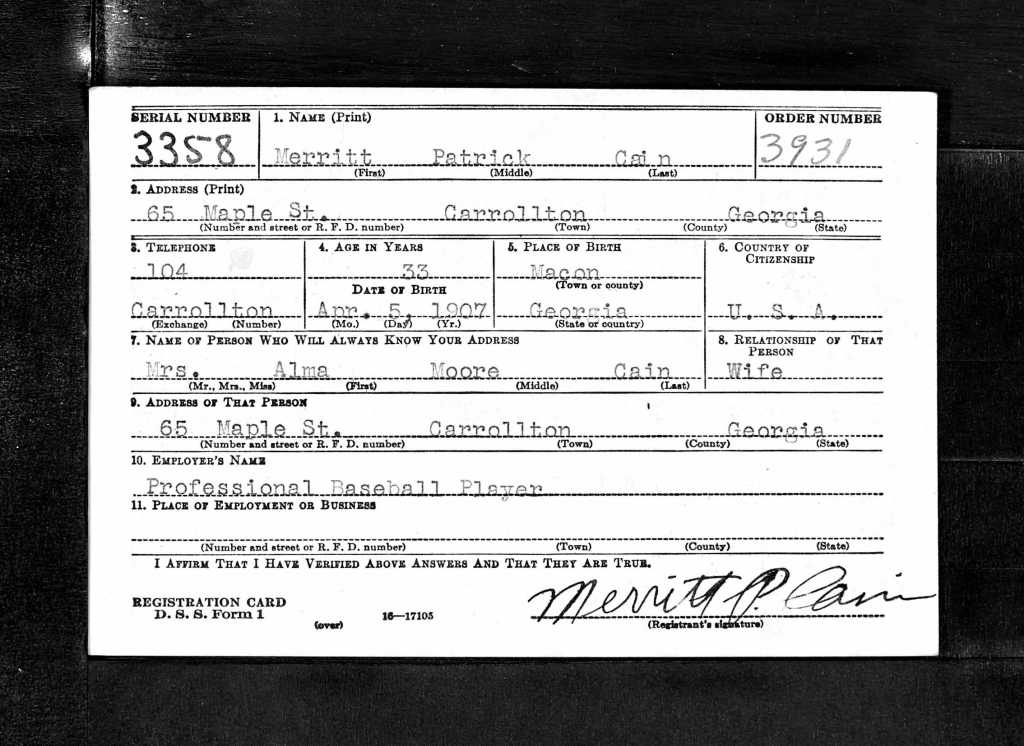 SERIAL NUMBER 1. NAME (Print) ORDER NUMBER
3358 Merritt Patrick Cain 3931
(First) (Middle) (Last)
2. ADDRESS (Print)
65 Maple St. Carrollton Georgia
(Number and street or R. F. D. number) (Town) (County) (State)
3. TELEPHONE 4. AGE IN YEARS 5. PLACE OF BIRTH 6. COUNTRY OF
CITIZENSHIP
104 33 Macon
DATE OF BIRTH (Town or county)
Carrollton Apr. 5, 1907 Georgia U. S. A.
(Exchange) (Number) (Mo.) (Day) (Yr.) (State or country)
7. NAME OF PERSON WHO WILL ALWAYS KNOW YOUR ADDRESS 8. RELATIONSHIP OF THAT
PERSON
Mrs. Alma Moore Cain Wife
(Mr., Mrs., Miss) (First) (Middle) (Last)
9. ADDRESS OF THAT PERSON
65 Maple St. Carrollton Georgia
(Number and street or R. F. D. number) (Town) (County) (State)
10. EMPLOYER'S NAME
Professional Baseball Player
11. PLACE OF EMPLOYMENT OR BUSINESS
(Number and street or R. F. D. number) (Town) (County) (State)
I AFFIRM THAT I HAVE VERIFIED ABOVE ANSWERS AND THAT THEY ARE TRUE.
Merritt P. Cain
REGISTRATION CARD
D. S. S. Form 1 (over) 16—17105 (Registrant's signature)